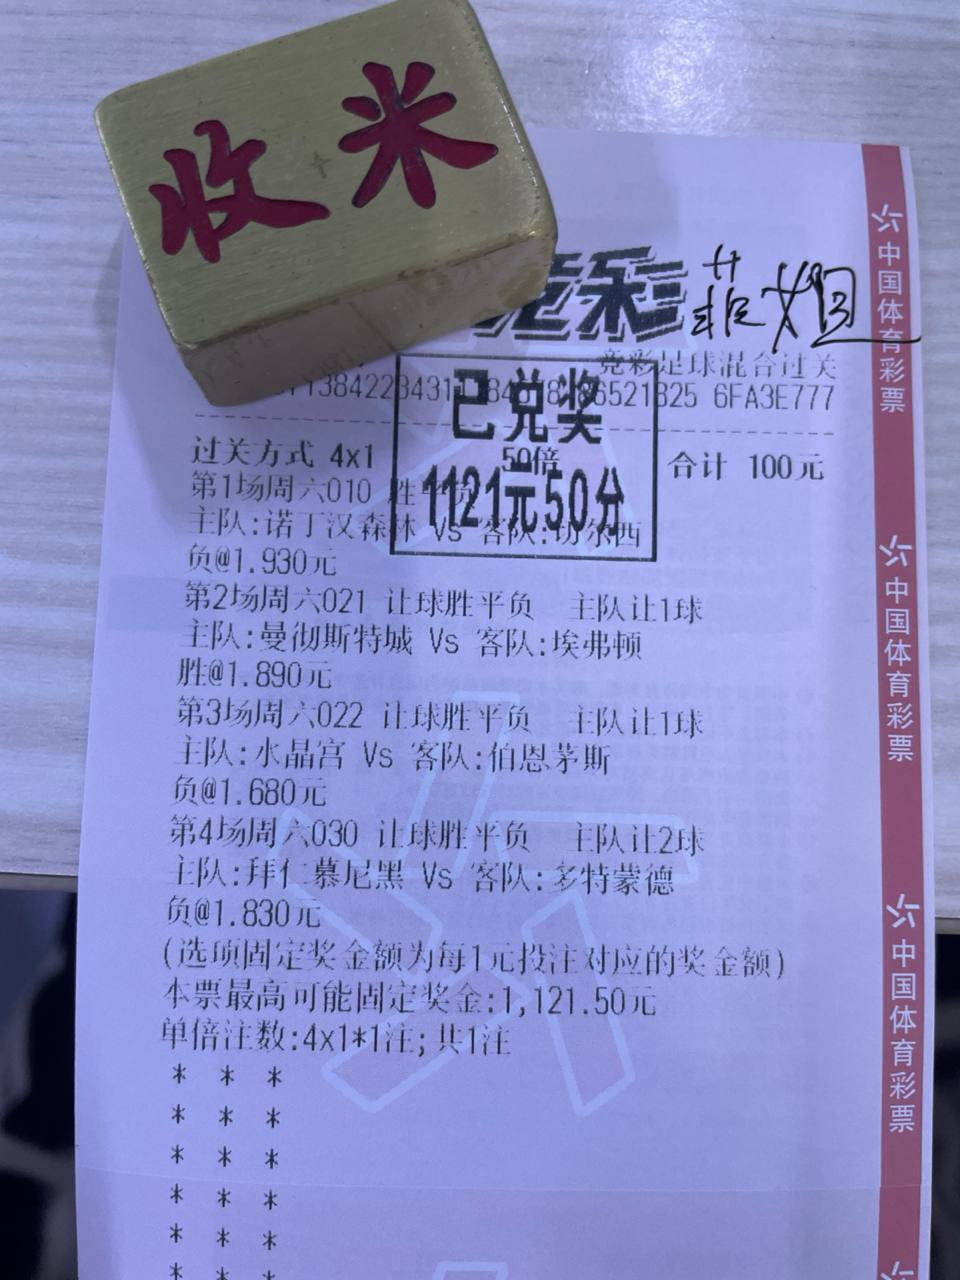 收米
竞彩
菲姐
竞彩足球混合过关
6FA3E777
已兑奖
1121元50分
过关方式 4x1 50倍 合计 100元
第1场周六010 胜平负
主队:诺丁汉森林 Vs 客队:切尔西
负@1.930元
第2场周六021 让球胜平负 主队让1球
主队:曼彻斯特城 Vs 客队:埃弗顿
胜@1.890元
第3场周六022 让球胜平负 主队让1球
主队:水晶宫 Vs 客队:伯恩茅斯
负@1.680元
第4场周六030 让球胜平负 主队让2球
主队:拜仁慕尼黑 Vs 客队:多特蒙德
负@1.830元
(选项固定奖金额为每1元投注对应的奖金额)
本票最高可能固定奖金:1,121.50元
单倍注数:4x1*1注;共1注
* * *
* * *
* * *
* * *
* * *
* * *
中国体育彩票
中国体育彩票
中国体育彩票